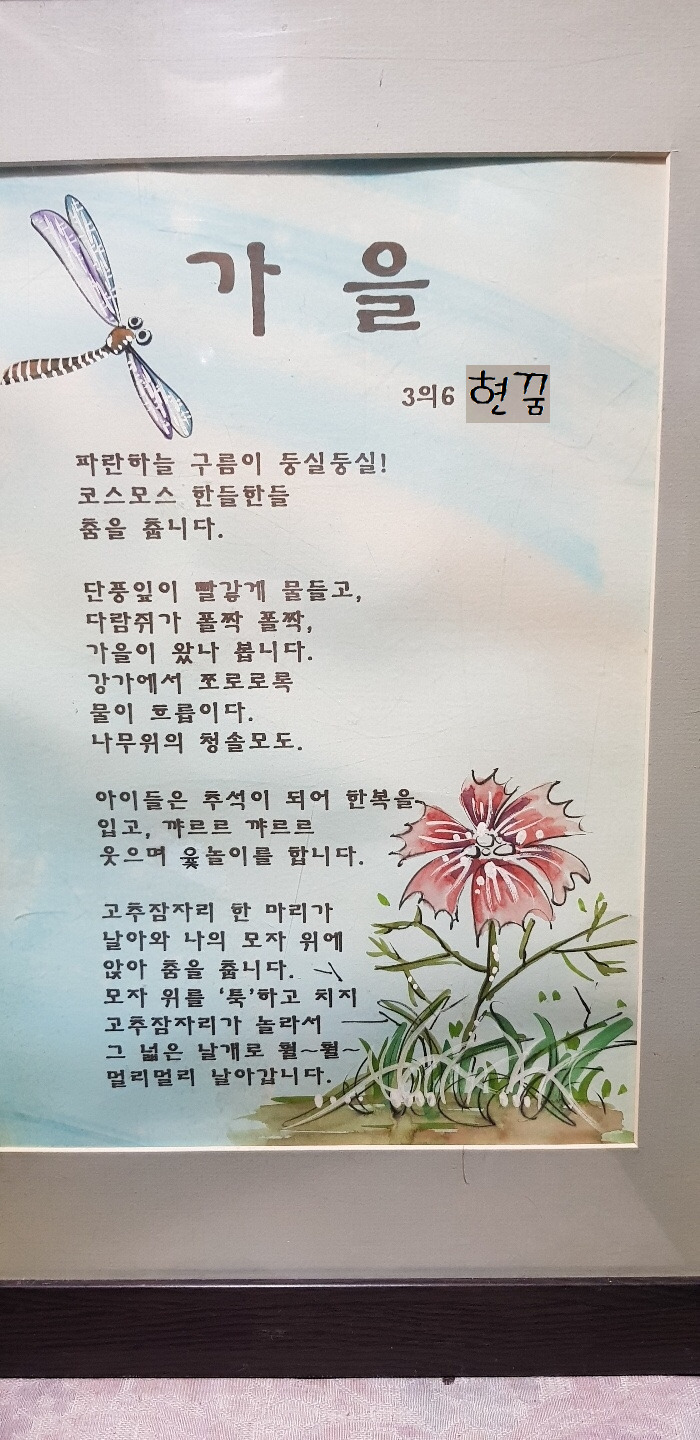 가을
3의6 현꿈
파란하늘 구름이 둥실둥실!
코스모스 한들한들
춤을 춥니다.
단풍잎이 빨갛게 물들고,
다람쥐가 폴짝 폴짝,
가을이 왔나 봅니다.
강가에서 쪼로로록
물이 흐릅이다.
나무위의 청솔모도.
아이들은 추석이 되어 한복을
입고, 꺄르르 꺄르르
웃으며 윷놀이를 합니다.
고추잠자리 한 마리가
날아와 나의 모자 위에
앉아 춤을 춥니다.
모자 위를 '툭'하고 치지
고추잠자리가 놀라서
그 넓은 날개로 훨~훨~
멀리멀리 날아갑니다.